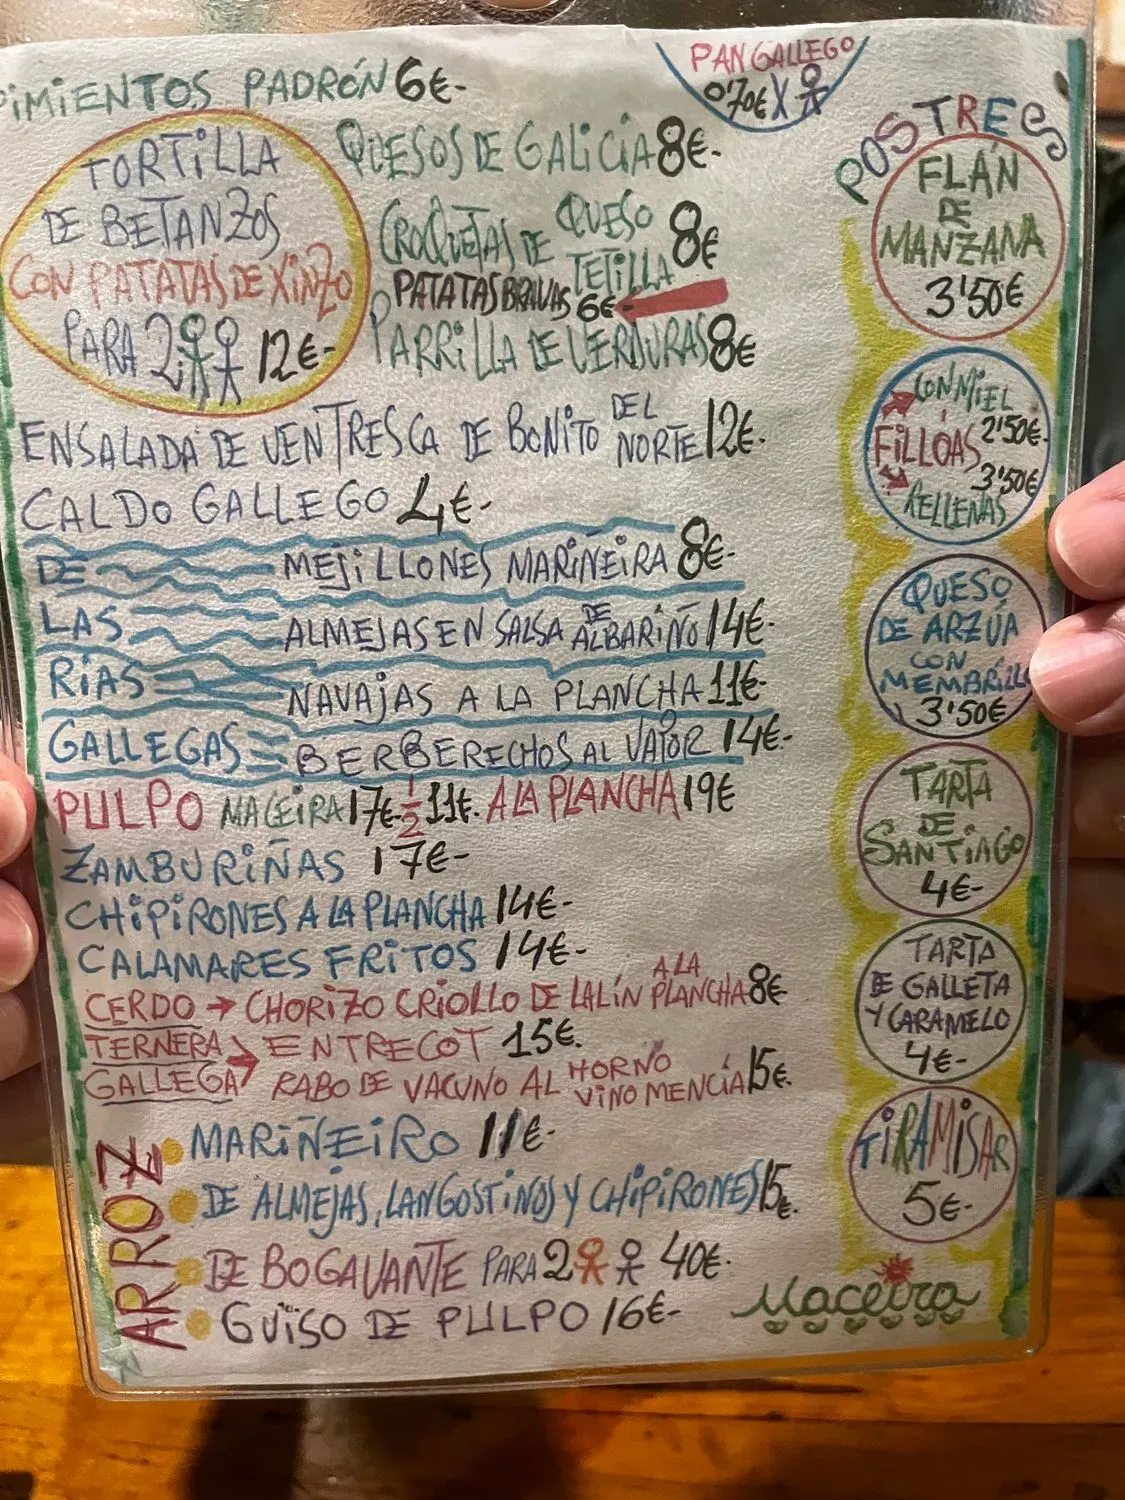 PIMIENTOS PADRÓN 6€-
PAN GALLEGO
0'70€ X
TORTILLA
DE BETANZOS
CON PATATAS DE XINZO
PARA 2 12€-
QUESOS DE GALICIA 8€-
CROQUETAS DE QUESO
TETILLA 8€
PATATAS BRAVAS 6€-
PARRILLA DE VERDURAS 8€
ENSALADA DE VENTRESCA DE BONITO DEL
NORTE 12€-
CALDO GALLEGO 4€-
DE
LAS
RÍAS
GALLEGAS
MEJILLONES MARIÑEIRA 8€-
ALMEJAS EN SALSA DE
ALBARIÑO 14€-
NAVAJAS A LA PLANCHA 11€-
BERBERECHOS AL VAPOR 14€-
PULPO MACEIRA 17€- 1/2 11€. A LA PLANCHA 19€
ZAMBURIÑAS 17€-
CHIPIRONES A LA PLANCHA 14€-
CALAMARES FRITOS 14€-
CERDO → CHORIZO CRIOLLO DE LALÍN A LA
PLANCHA 8€
TERNERA
GALLEGA
ENTRECOT 15€.
RABO DE VACUNO AL HORNO
VINO MENCÍA 15€.
ARROZ
MARIÑEIRO 11€-
DE ALMEJAS, LANGOSTINOS Y CHIPIRONES 15€.
DE BOGAVANTE PARA 2 40€-
GUISO DE PULPO 16€-
POSTRES
FLÁN
DE
MANZANA
3'50€
CON MIEL
2'50€-
FILLOAS
3'50€
RELLENAS
QUESO
DE ARZÚA
CON
MEMBRILLO
3'50€
TARTA
DE
SANTIAGO
4€-
TARTA
DE GALLETA
Y CARAMELO
4€-
TIRAMISAR
5€-
Maceira